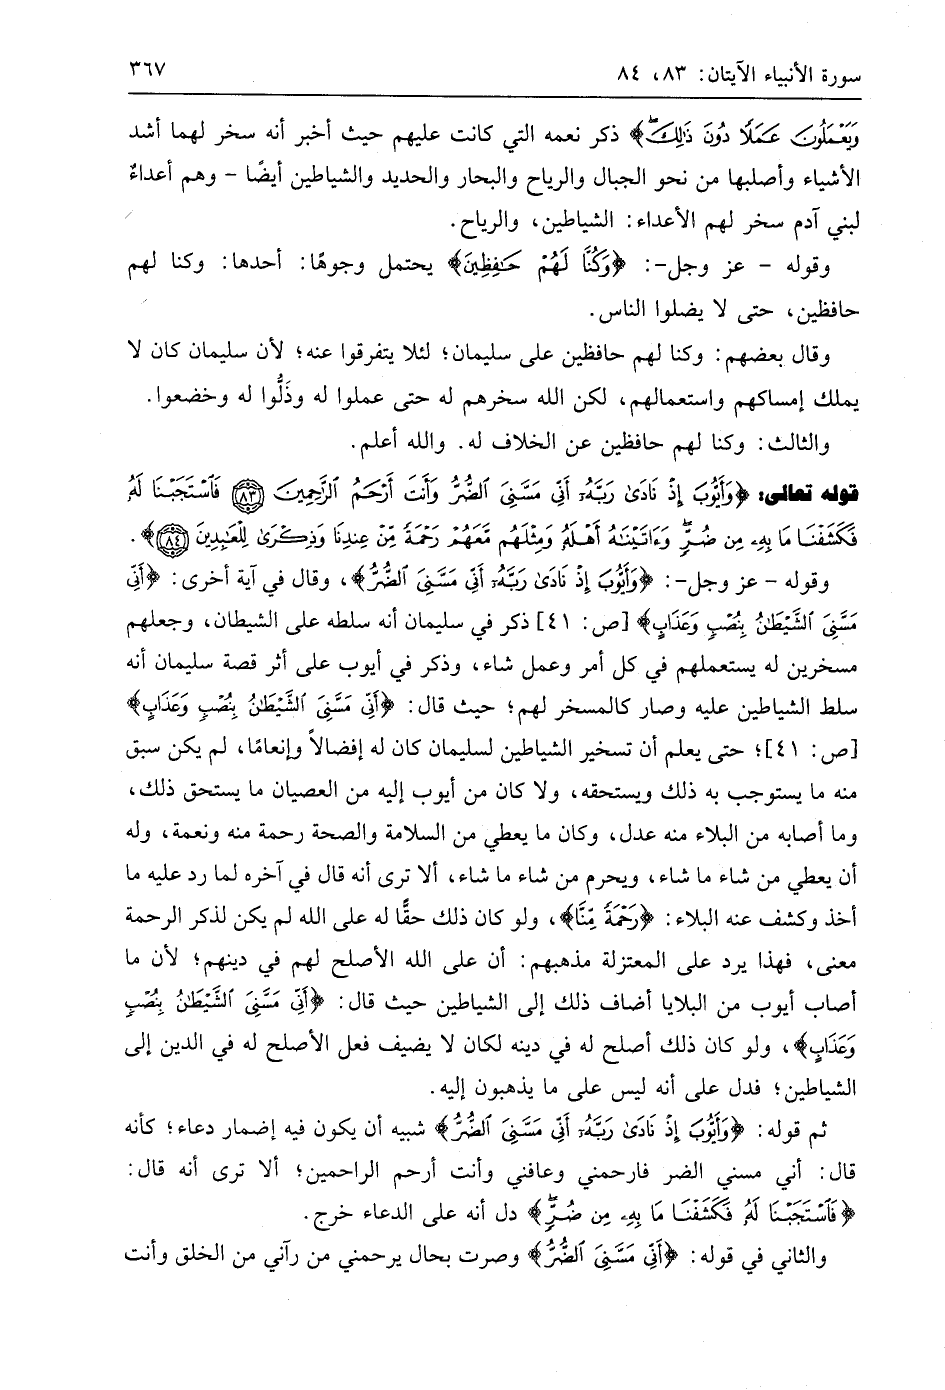 سورة الأنبياء الآيتان: ٨٣، ٨٤
٣٦٧
وَيَعْمَلُونَ عَمَلًا دُونَ ذَٰلِكَۖ﴾ ذكر نعمه التي كانت عليهم حيث أخبر أنه سخر لهما أشد
الأشياء وأصلبها من نحو الجبال والرياح والبحار والحديد والشياطين أيضًا – وهم أعداءٌ
لبني آدم سخر لهم الأعداء: الشياطين، والرياح.
وقوله – عز وجل–: ﴿وَكُنَّا لَهُمْ حَٰفِظِينَ﴾ يحتمل وجوهًا: أحدها: وكنا لهم
حافظين، حتى لا يضلوا الناس.
وقال بعضهم: وكنا لهم حافظين على سليمان؛ لئلا يتفرقوا عنه؛ لأن سليمان كان لا
يملك إمساكهم واستعمالهم، لكن الله سخرهم له حتى عملوا له وذَلُّوا له وخضعوا.
والثالث: وكنا لهم حافظين عن الخلاف له. والله أعلم.
قوله تعالى: ﴿وَأَيُّوبَ إِذْ نَادَىٰ رَبَّهُۥٓ أَنِّي مَسَّنِيَ ٱلضُّرُّ وَأَنتَ أَرْحَمُ ٱلرَّٰحِمِينَ ﴿٨٣﴾ فَٱسْتَجَبْنَا لَهُۥ
فَكَشَفْنَا مَا بِهِۦ مِن ضُرٍّۖ وَءَاتَيْنَٰهُ أَهْلَهُۥ وَمِثْلَهُم مَّعَهُمْ رَحْمَةً مِّنْ عِندِنَا وَذِكْرَىٰ لِلْعَٰبِدِينَ ﴿٨٤﴾﴾.
وقوله – عز وجل–: ﴿وَأَيُّوبَ إِذْ نَادَىٰ رَبَّهُۥٓ أَنِّي مَسَّنِيَ ٱلضُّرُّ﴾، وقال في آية أخرى: ﴿أَنِّي
مَسَّنِيَ ٱلشَّيْطَٰنُ بِنُصْبٍ وَعَذَابٍ﴾ [ص: ٤١] ذكر في سليمان أنه سلطه على الشيطان، وجعلهم
مسخرين له يستعملهم في كل أمر وعمل شاء، وذكر في أيوب على أثر قصة سليمان أنه
سلط الشياطين عليه وصار كالمسخر لهم؛ حيث قال: ﴿أَنِّي مَسَّنِيَ ٱلشَّيْطَٰنُ بِنُصْبٍ وَعَذَابٍ﴾
[ص: ٤١]؛ حتى يعلم أن تسخير الشياطين لسليمان كان له إفضالاً وإنعامًا، لم يكن سبق
منه ما يستوجب به ذلك ويستحقه، ولا كان من أيوب إليه من العصيان ما يستحق ذلك،
وما أصابه من البلاء منه عدل، وكان ما يعطي من السلامة والصحة رحمة منه ونعمة، وله
أن يعطي من شاء ما شاء، ويحرم من شاء ما شاء، ألا ترى أنه قال في آخره لما رد عليه ما
أخذ وكشف عنه البلاء: ﴿رَحْمَةً مِّنَّا﴾، ولو كان ذلك حقًّا له على الله لم يكن لذكر الرحمة
معنى، فهذا يرد على المعتزلة مذهبهم: أن على الله الأصلح لهم في دينهم؛ لأن ما
أصاب أيوب من البلايا أضاف ذلك إلى الشياطين حيث قال: ﴿أَنِّي مَسَّنِيَ ٱلشَّيْطَٰنُ بِنُصْبٍ
وَعَذَابٍ﴾، ولو كان ذلك أصلح له في دينه لكان لا يضيف فعل الأصلح له في الدين إلى
الشياطين؛ فدل على أنه ليس على ما يذهبون إليه.
ثم قوله: ﴿وَأَيُّوبَ إِذْ نَادَىٰ رَبَّهُۥٓ أَنِّي مَسَّنِيَ ٱلضُّرُّ﴾ شبيه أن يكون فيه إضمار دعاء؛ كأنه
قال: أني مسني الضر فارحمني وعافني وأنت أرحم الراحمين؛ ألا ترى أنه قال:
﴿فَٱسْتَجَبْنَا لَهُۥ فَكَشَفْنَا مَا بِهِۦ مِن ضُرٍّۖ﴾ دل أنه على الدعاء خرج.
والثاني في قوله: ﴿أَنِّي مَسَّنِيَ ٱلضُّرُّ﴾ وصرت بحال يرحمني من رآني من الخلق وأنت